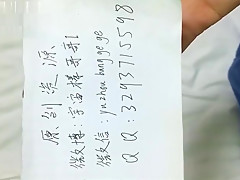 原创 源
微博:宇宙棒哥哥1
微信:yuzhoubanggege
QQ:3293715598